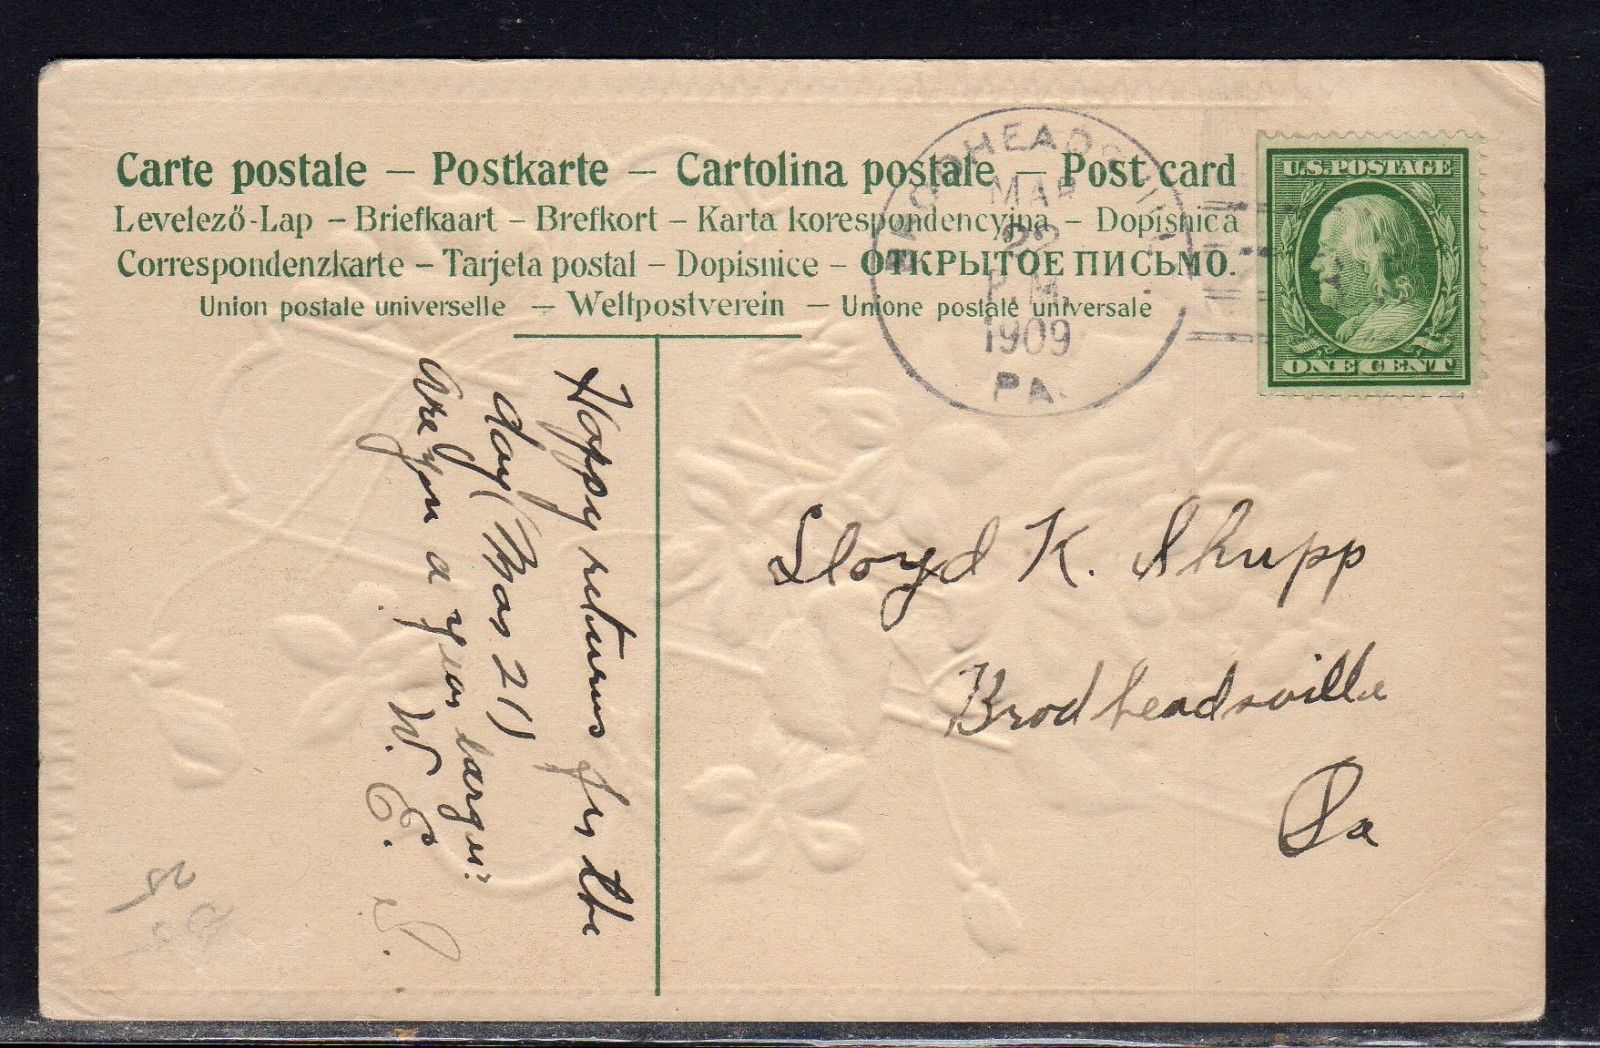 Carte postale – Postkarte – Cartolina postale – Post card
Levelező-Lap – Briefkaart – Brefkort – Karta korespondencyjna – Dopisnica
Correspondenzkarte – Tarjeta postal – Dopisnice – ОТКРЫТОЕ ПИСЬМО.
Union postale universelle – Weltpostverein – Unione postale universale
BRODHEADSVILLE
MAR
22
P.M.
1909
PA.
U.S. POSTAGE
ONE CENT
Happy returns for the
day (Mar 21)
Are you a year larger?
W. E. S.
Lloyd K. Shupp
Brodheadsville
Pa
25